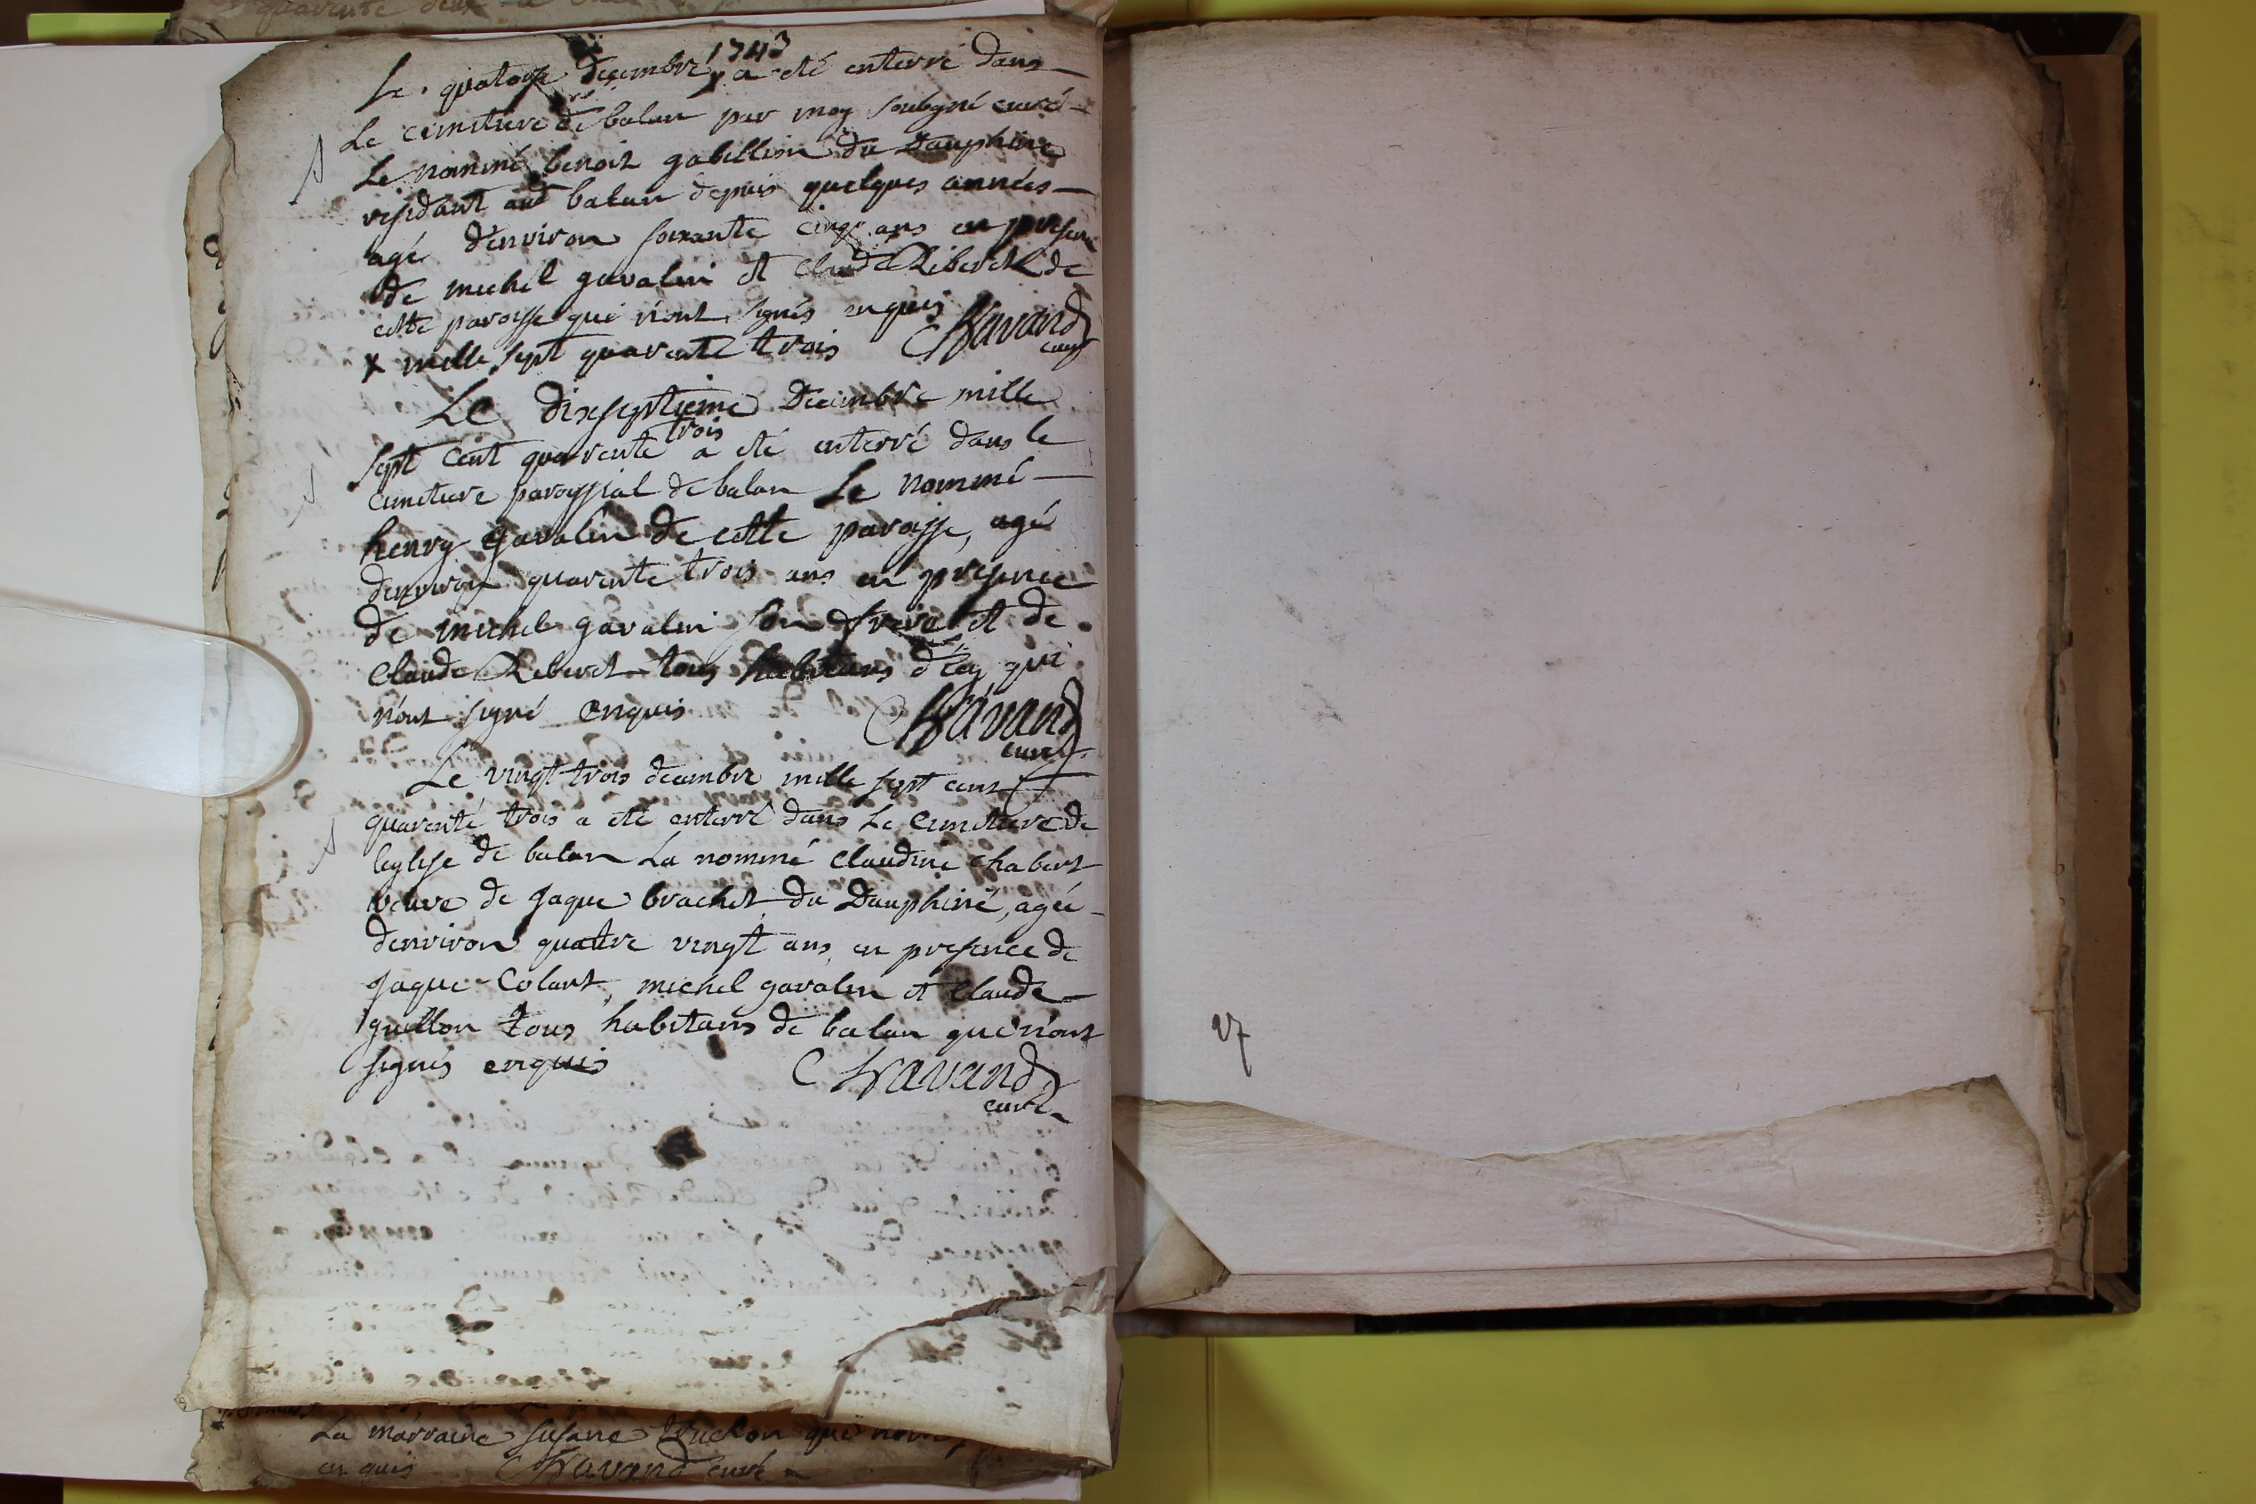 1743
Le quatorze decembre x a eté enterré dans
Le cimetiere de balan par moy soubsigné curé
Le nommé benoit gabillion du Dauphiné
residant aud balan depuis quelques années
agé d'environ soixante cinq ans en presence
de michel gavalin et claude Riberet de
cette paroisse qui n'ont signés enquis
x mille sept quarente trois Chavand
curé
Le dixseptieme Decembre mille
sept cent quarente trois a eté enterré dans le
cimetiere paroyssial de balan Le nommé
henry gavalin de cette paroisse, agé
denviron quarente trois ans en presence
de michel gavalin son frere et de
claude Riberet tous habitans d'icy qui
n'ont signé enquis Chavand
curé
Le vingt trois decembre mille sept cent
quarente trois a eté enterré dans Le cimetiere de
leglise de balan La nommé claudine chabert
veuve de jaque brachet du Dauphiné, agée
denviron quatre vingt ans, en presence de
jaque Colant, michel gavalin et claude
guillon tous habitans de balan qui n'ont
signés enquis Chavand
curé
La marraine susane qui n'ont
enquis Chavand curé
27